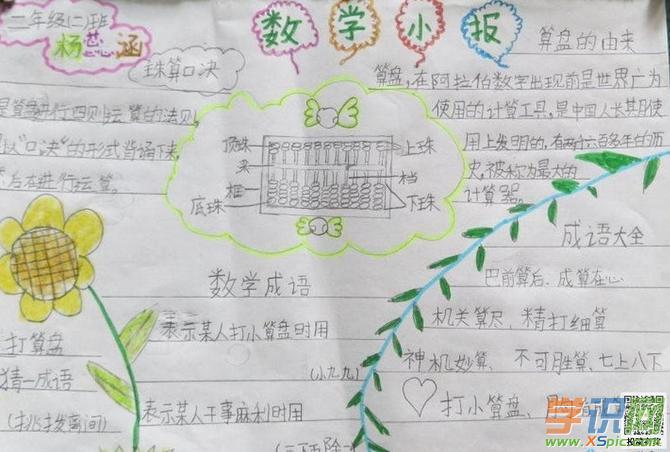 二年级(二)班
数学小报
珠算口决
算盘的由来
算盘,在阿拉伯数字出现前是世界广为
使用的计算工具,是中国人长其月使
用上发明的,有两千六百年的历
史,被称为最大的
计算器。
是算盘进行四则运算的法则
以"口决"的形式背诵下来,
然后在进行运算。
顶珠
梁
框
底珠
上珠
档
下珠
数学成语
表示某人打小算盘时用
(小九九)
表示某人干事麻利时用
打算盘
猜一成语
(挑拨离间)
成语大全
巴前算后、成算在心
机关算尽、精打细算
神机妙算、不可胜算、七上八下
打小算盘、
学识网
www.XSpic.com